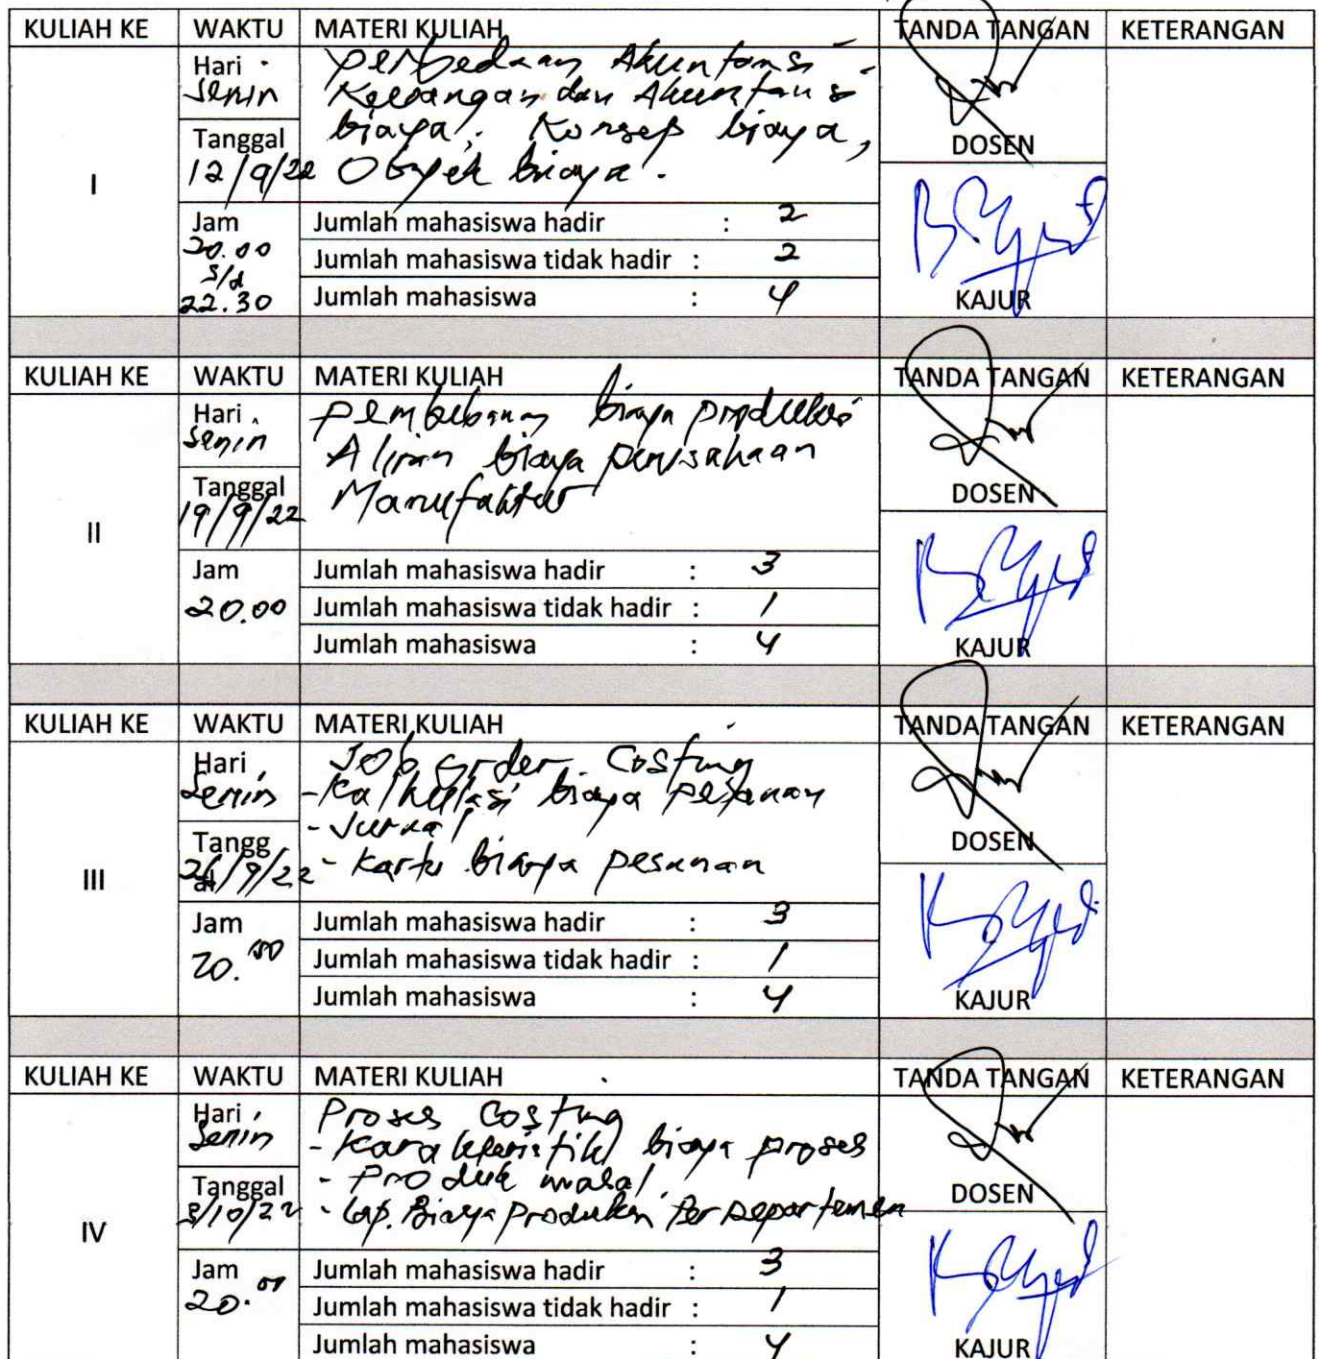 KULIAH KE WAKTU MATERI KULIAH TANDA TANGAN KETERANGAN
I
Hari
Senin
Tanggal
12/9/22
Jam
20.00
s/d
22.30
Perbedaan Akuntansi
Keuangan dan Akuntansi
biaya. Konsep biaya,
Obyek biaya.
Jumlah mahasiswa hadir : 2
Jumlah mahasiswa tidak hadir : 2
Jumlah mahasiswa : 4
DOSEN
KAJUR
KULIAH KE WAKTU MATERI KULIAH TANDA TANGAN KETERANGAN
II
Hari
Senin
Tanggal
19/9/22
Jam
20.00
Pembebanan biaya produksi
Aliran biaya perusahaan
Manufaktur
Jumlah mahasiswa hadir : 3
Jumlah mahasiswa tidak hadir : 1
Jumlah mahasiswa : 4
DOSEN
KAJUR
KULIAH KE WAKTU MATERI KULIAH TANDA TANGAN KETERANGAN
III
Hari
Senin
Tangg
al
26/9/22
Jam
20.00
Job order Costing
- Kalkulasi biaya pesanan
- Jurnal
- Kartu biaya pesanan
Jumlah mahasiswa hadir : 3
Jumlah mahasiswa tidak hadir : 1
Jumlah mahasiswa : 4
DOSEN
KAJUR
KULIAH KE WAKTU MATERI KULIAH TANDA TANGAN KETERANGAN
IV
Hari
Senin
Tanggal
3/10/22
Jam
20.00
Proses Costing
- Karakteristik biaya proses
- Produk masal
- Lap. Biaya Produksi Per Departemen
Jumlah mahasiswa hadir : 3
Jumlah mahasiswa tidak hadir : 1
Jumlah mahasiswa : 4
DOSEN
KAJUR